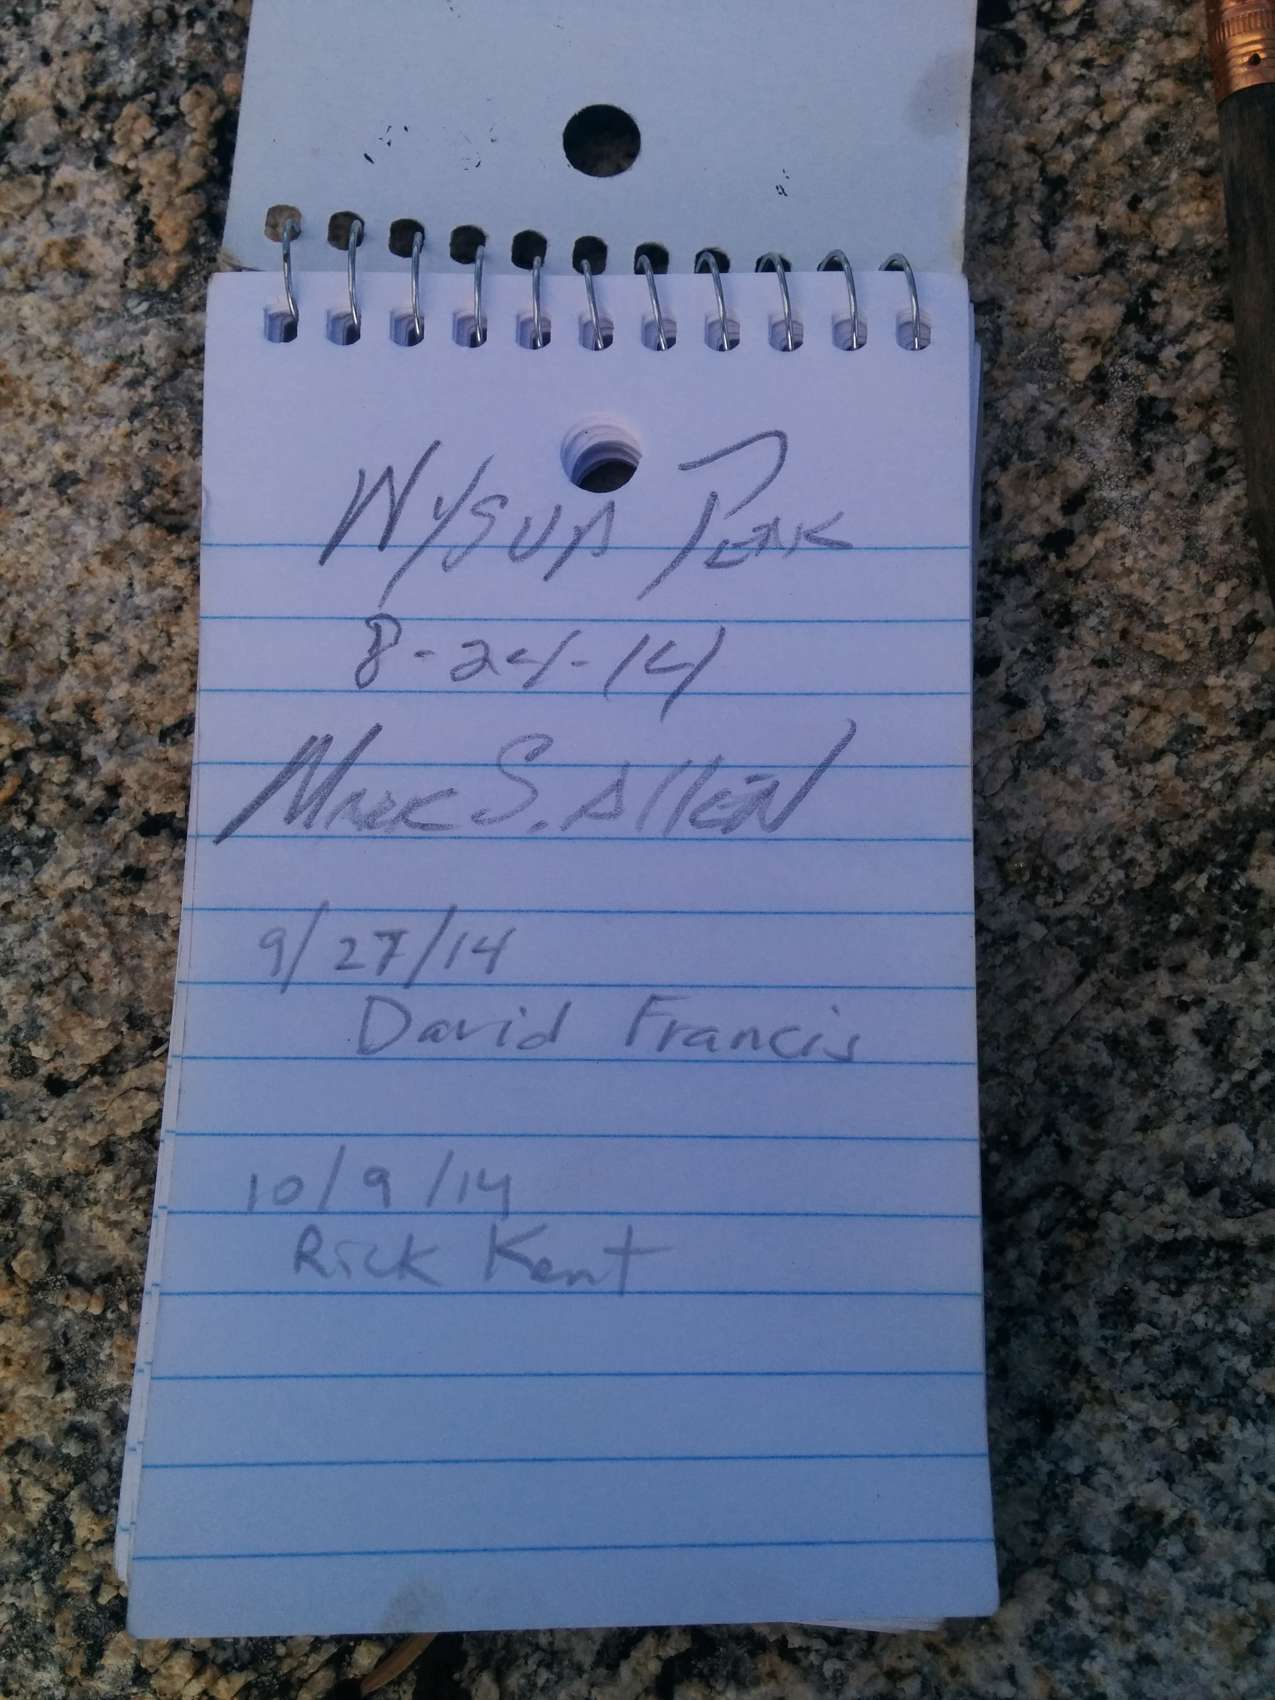 WYSUP PEAK
8-24-14
MARK S. AllEN
9/27/14
David Francis
10/9/14
Rick Kent